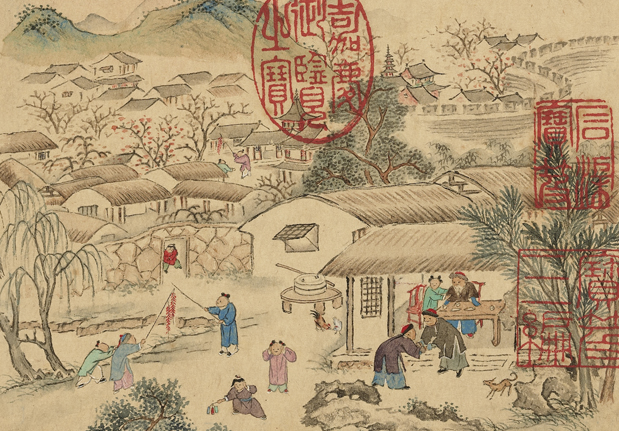 嘉慶
御覽
之寶
石渠
寶笈
寶笈
三編